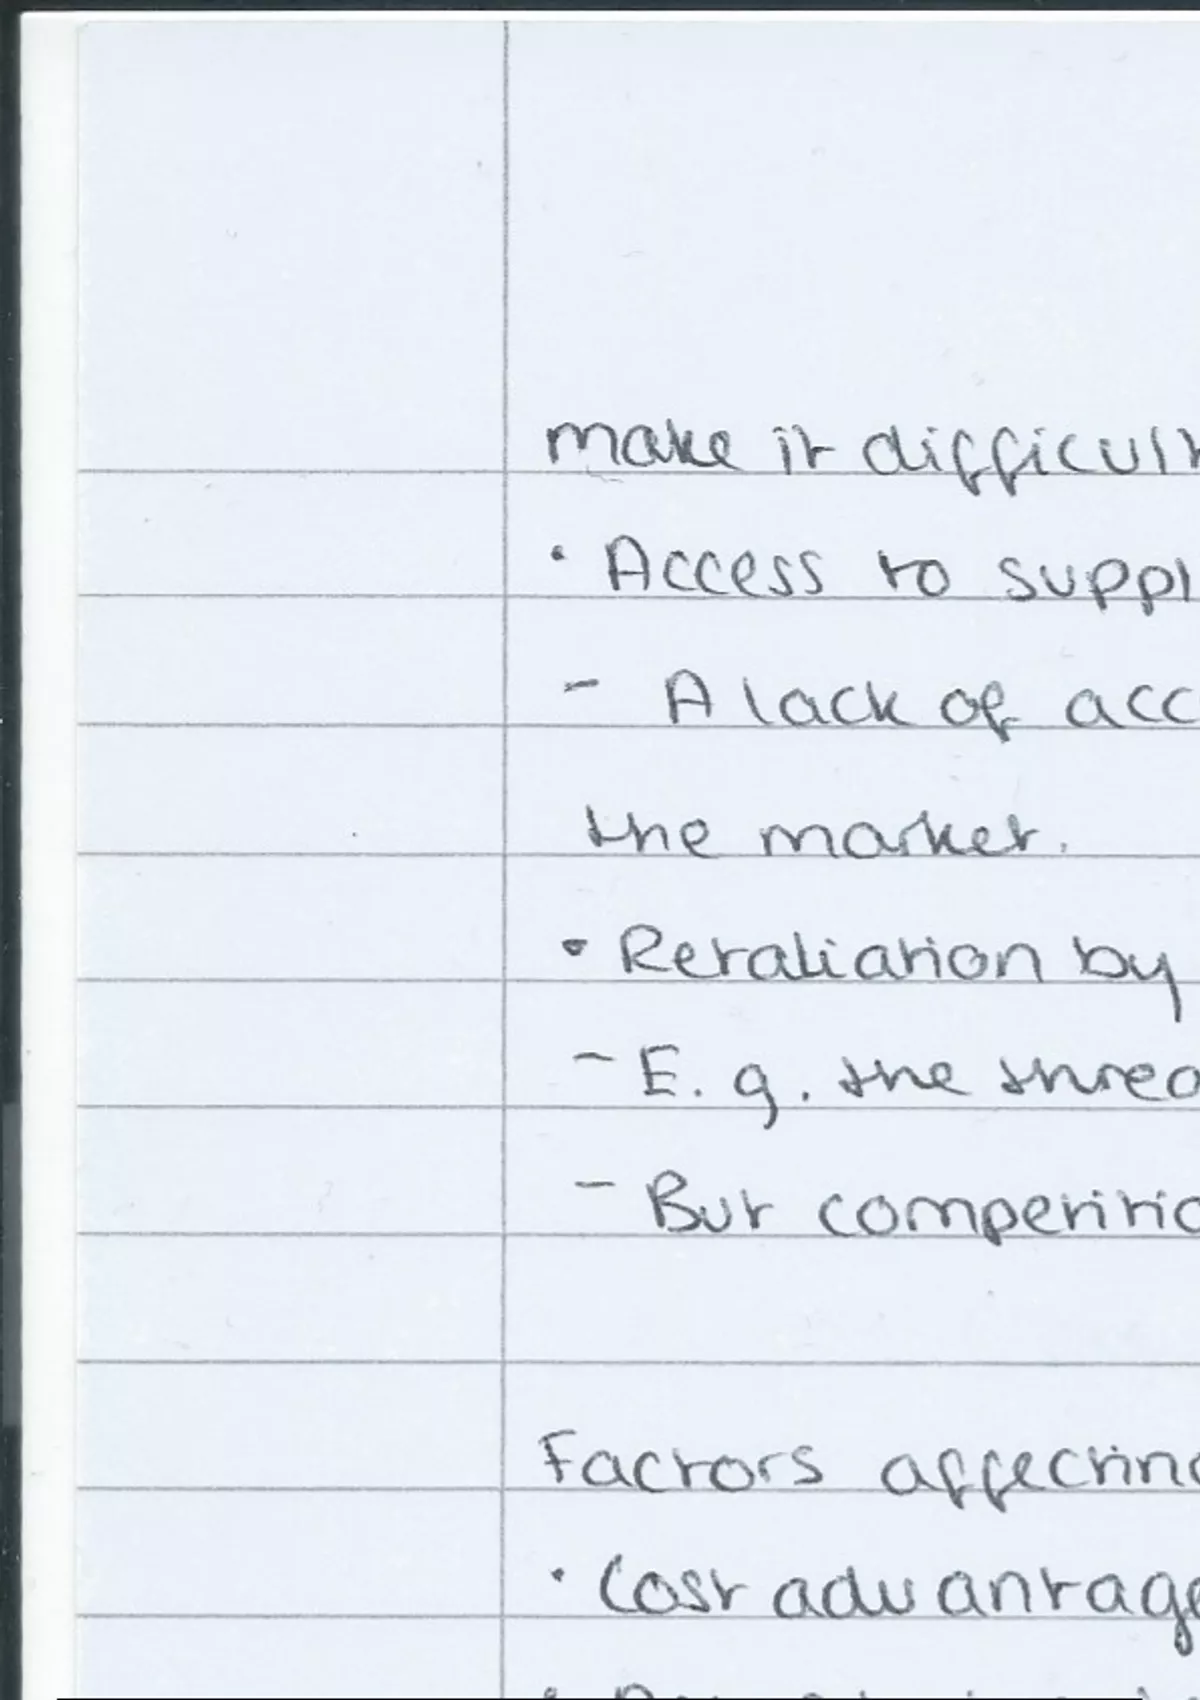 make it difficult
• Access to suppl
- A lack of acc
the market.
• Retaliation by
- E.g. the threa
- But competitio
Factors affecting
• Cost advantage